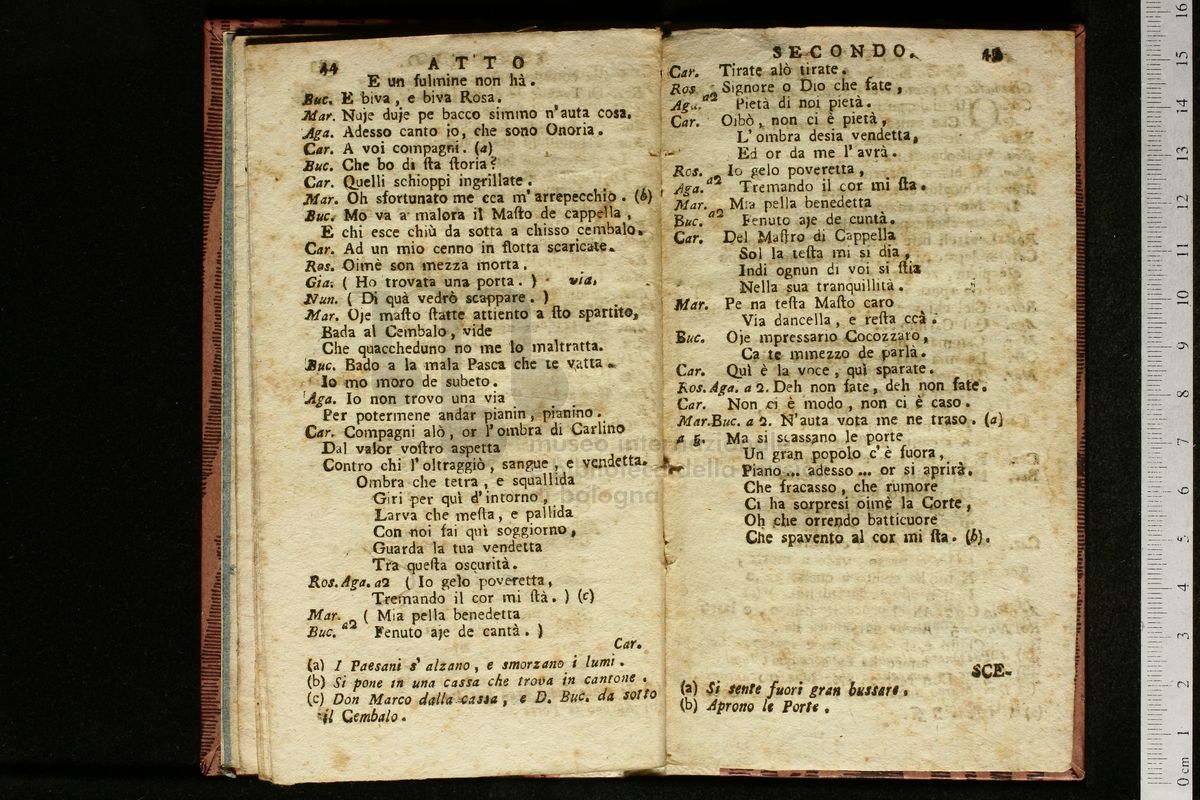 44 ATTO
E un fulmine non hà.
Buc. E biva, e biva Rosa.
Mar. Nuje duje pe bacco simmo n'auta cosa.
Aga. Adesso canto jo, che sono Onoria.
Car. A voi compagni. (a)
Buc. Che bo di ſta ſtoria?
Car. Quelli schioppi ingrillate.
Mar. Oh sfortunato me cca m'arrepecchio. (b)
Buc. Mo va a malora il Maſto de cappella,
E chi esce chiù da sotta a chisso cembalo.
Car. Ad un mio cenno in flotta scaricate.
Ros. Oimè son mezza morta.
Gia. ( Ho trovata una porta. ) via.
Nun. ( Di quà vedrò scappare. )
Mar. Oje maſto ſtatte attiento a ſto spartito,
Bada al Cembalo, vide
Che quaccheduno no me lo maltratta.
Buc. Bado a la mala Pasca che te vatta.
Io mo moro de subeto.
Aga. Io non trovo una via
Per potermene andar pianin, pianino.
Car. Compagni alò, or l'ombra di Carlino
Dal valor voſtro aspetta
Contro chi l'oltraggiò, sangue, e vendetta.
Ombra che tetra, e squallida
Giri per quì d'intorno,
Larva che meſta, e pallida
Con noi fai quì soggiorno,
Guarda la tua vendetta
Tra queſta oscurità.
Ros. Aga. a2 ( Io gelo poveretta,
Tremando il cor mi ſtà. ) (c)
Mar. ( Mia pella benedetta
Buc. a2 Fenuto aje de cantà. )
Car.
(a) I Paesani s' alzano, e smorzano i lumi.
(b) Si pone in una cassa che trova in cantone.
(c) Don Marco dalla cassa, e D. Buc. da sotto
il Cembalo.
SECONDO.
Car. Tirate alò tirate.
Ros. Signore o Dio che fate,
Aga. a2 Pietà di noi pietà.
Car. Oibò, non ci è pietà,
L'ombra desia vendetta,
Ed or da me l'avrà.
Ros. Io gelo poveretta,
Aga. a2 Tremando il cor mi ſta.
Mar. Mia pella benedetta
Buc. a2 Fenuto aje de cuntà.
Car. Del Maſtro di Cappella
Sol la teſta mi si dia,
Indi ognun di voi si ſtia
Nella sua tranquillità.
Mar. Pe na teſta Maſto caro
Via dancella, e reſta ccà.
Buc. Oje mpressario Cocozzaro,
Ca te mmezzo de parlà.
Car. Quì è la voce, quì sparate.
Ros. Aga. a 2. Deh non fate, deh non fate.
Car. Non ci è modo, non ci è caso.
Mar. Buc. a 2. N'auta vota me ne traso. (a)
a 5. Ma si scassano le porte
Un gran popolo c'è fuora,
Piano ... adesso ... or si aprirà.
Che fracasso, che rumore
Ci ha sorpresi oimè la Corte,
Oh che orrendo batticuore
Che spavento al cor mi ſta. (b).
SCE-
(a) Si sente fuori gran bussare.
(b) Aprono le Porte.